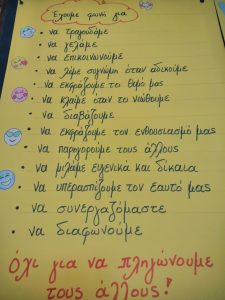 Έχουμε φωνή για
• να τραγουδάμε
• να γελάμε
• να επικοινωνούμε
• να λέμε συγνώμη όταν αδικούμε
• να εκφράζουμε το θυμό μας
• να κλαίμε όταν το νιώθουμε
• να διαβάζουμε
• να εκφράζουμε τον ενθουσιασμό μας
• να παρηγορούμε τους άλλους
• να μιλάμε ευγενικά και δίκαια
• να υπερασπίζουμε τον εαυτό μας
• να συνεργαζόμαστε
• να διαφωνούμε
Όχι για να πληγώνουμε
τους άλλους!